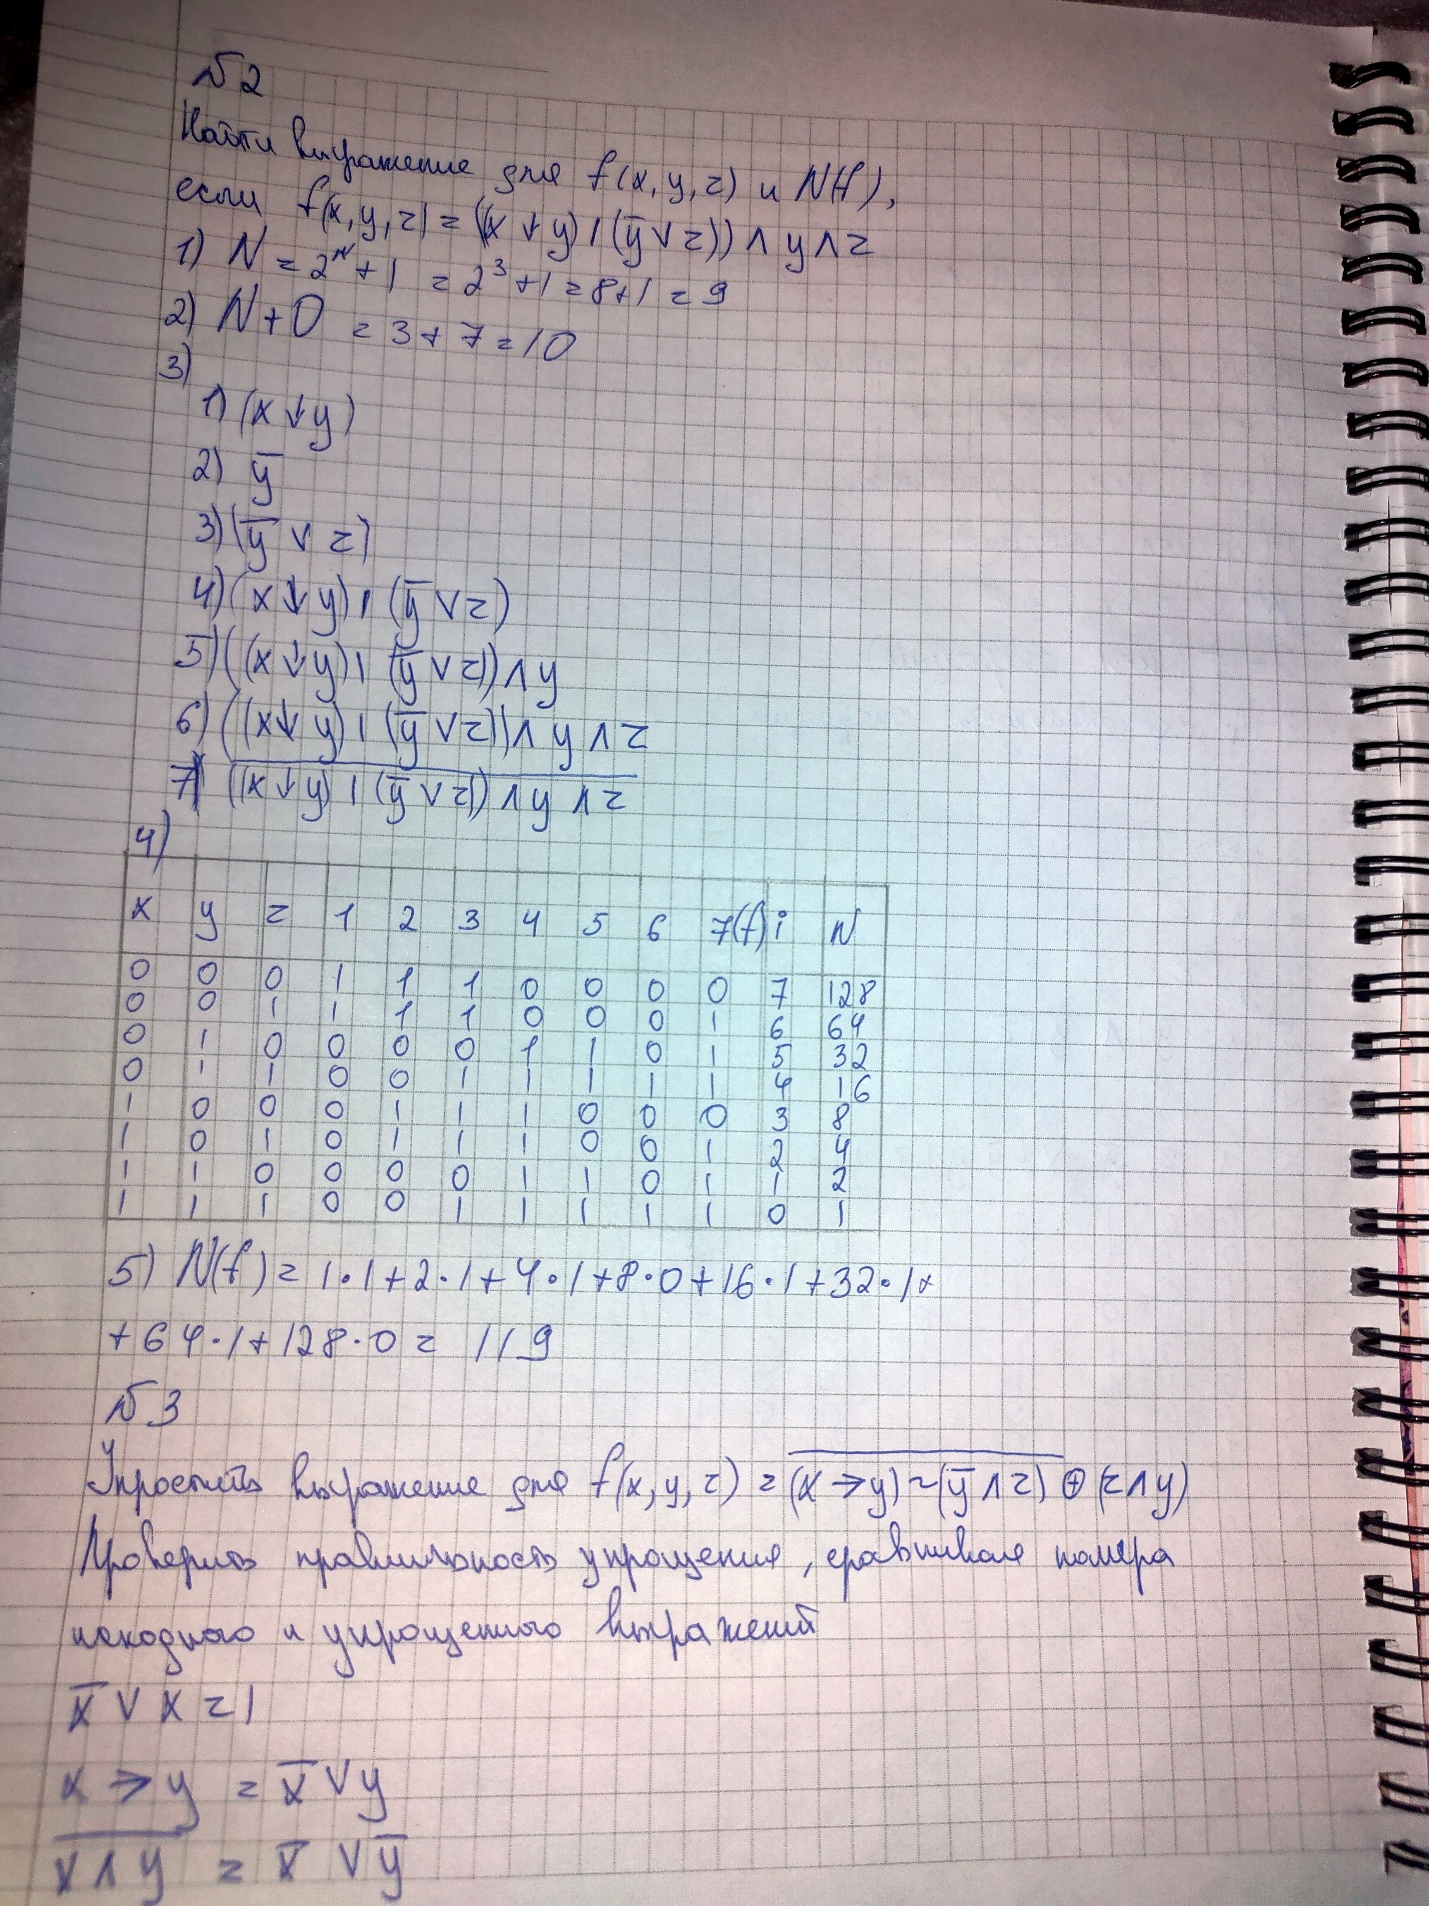 №2
Найти выражение для f(x, y, z) и N(f),
если f(x, y, z) = ((x ↓ y) | (y̅ ∨ z)) ∧ y ∧ z
1) N = 2ᴺ + 1 = 2³ + 1 = 8 + 1 = 9
2) N + O = 3 + 7 = 10
3)
1) (x ↓ y)
2) y̅
3) (y̅ ∨ z)
4) (x ↓ y) | (y̅ ∨ z)
5) ((x ↓ y) | (y̅ ∨ z)) ∧ y
6) ((x ↓ y) | (y̅ ∨ z)) ∧ y ∧ z
7) ((x ↓ y) | (y̅ ∨ z)) ∧ y ∧ z
4)
x y z 1 2 3 4 5 6 7(f) i N
0 0 0 1 1 1 0 0 0 0 7 128
0 0 1 1 1 1 0 0 0 1 6 64
0 1 0 0 0 0 1 1 0 1 5 32
0 1 1 0 0 1 1 1 1 1 4 16
1 0 0 0 1 1 1 0 0 0 3 8
1 0 1 0 1 1 1 0 0 1 2 4
1 1 0 0 0 0 1 1 0 1 1 2
1 1 1 0 0 1 1 1 1 1 0 1
5) N(f) = 1·1 + 2·1 + 4·1 + 8·0 + 16·1 + 32·1 +
+ 64·1 + 128·0 = 119
№3
Упростить выражение для f(x, y, z) = (x → y) ~ (y̅ ∧ z) ⊕ (z ∧ y)
Проверить правильность упрощения, сравнивая номера
исходного и упрощенного выражений
x̅ ∨ x = 1
x → y = x̅ ∨ y
x̅ ∧̅ y̅ = x̅ ∨ y̅